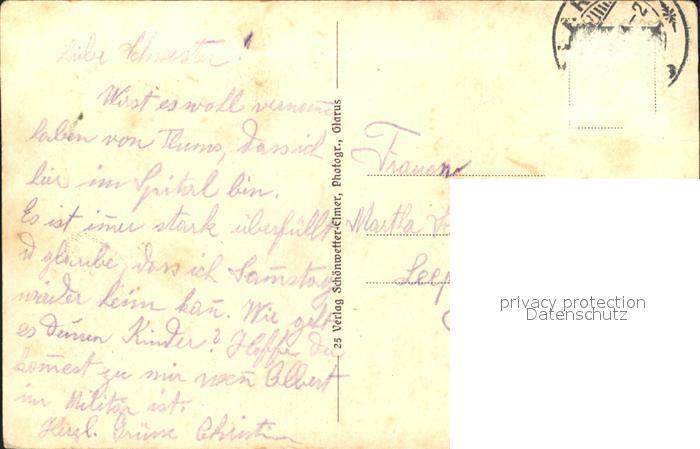 Liebe Schwester!
Wirst es wohl vernom̅en
haben von Flums, dass ich
hier im Spital bin.
Es ist im̅er stark überfüllt
u glaube, dass ich Sam̅stag
wieder heim kan̅. Wie geht
es deinen Kinder? Hoffe du
kom̅est zu mir wen̅ Albert
im Militär ist.
Herzl. Grüsse
25 Verlag Schönwetter-Elmer, Photogr., Glarus
Frauen
Martha
privacy protection
Datenschutz